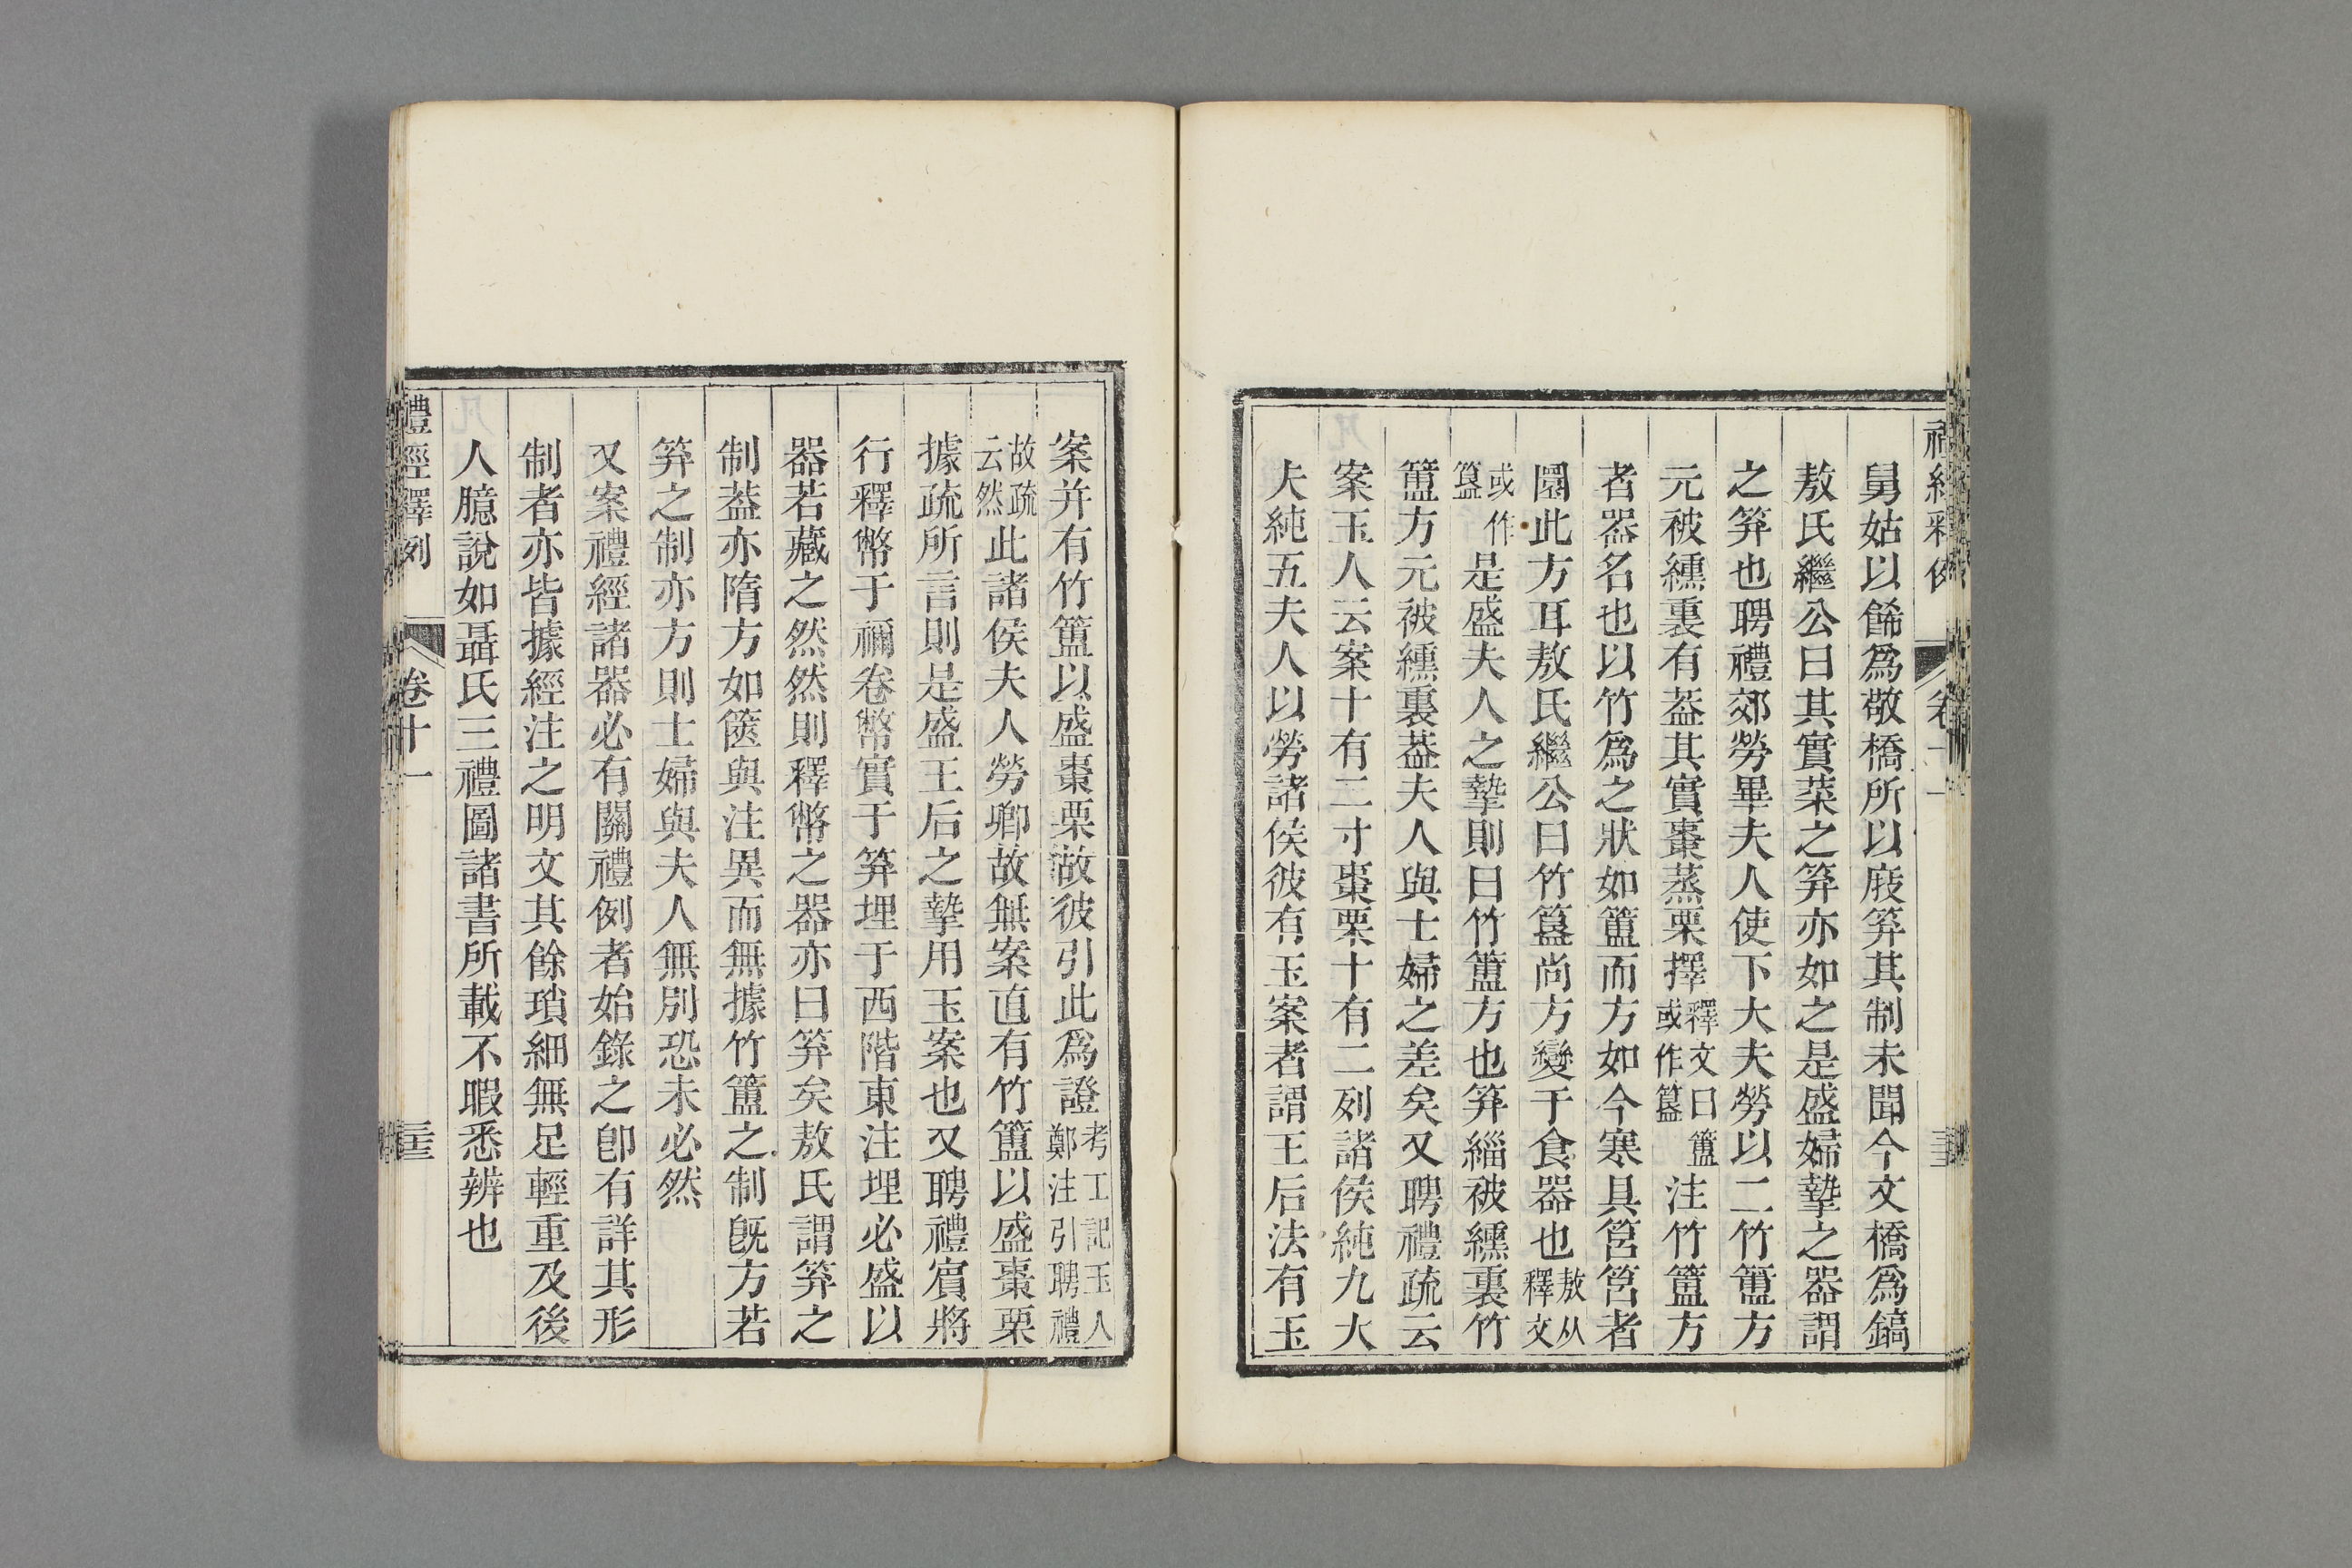 舅姑以餙爲敬橋所以庪笲其制未聞今文橋爲鎬
敖氏繼公曰其實菜之笲亦如之是盛婦摯之器謂
之笲也聘禮郊勞畢夫人使下大夫勞以二竹簠方
元被纁裏有葢其實棗蒸栗擇釋文曰簠或作簋注竹簠方
者器名也以竹爲之狀如簠而方如今寒具筥筥者
圜此方耳敖氏繼公曰竹簋尚方變于食器也敖从釋文
或作簋是盛夫人之摯則曰竹簠方也笲緇被纁裏竹
簠方元被纁裏葢夫人與士婦之差矣又聘禮疏云
案玉人云案十有二寸棗栗十有二列諸侯純九大
夫純五夫人以勞諸侯彼有玉案者謂王后法有玉
案并有竹簠以盛棗栗故彼引此爲證考工記玉人鄭注引聘禮
故疏云然此諸侯夫人勞卿故無案直有竹簠以盛棗栗
據疏所言則是盛王后之摯用玉案也又聘禮賓將
行釋幣于禰卷幣實于笲埋于西階東注埋必盛以
器若藏之然然則釋幣之器亦曰笲矣敖氏謂笲之
制葢亦隋方如篋與注異而無據竹簠之制旣方若
笲之制亦方則士婦與夫人無別恐未必然
又案禮經諸器必有關禮例者始錄之卽有詳其形
制者亦皆據經注之明文其餘瑣細無足輕重及後
人臆說如聶氏三禮圖諸書所載不暇悉辨也
禮經釋例 卷十一